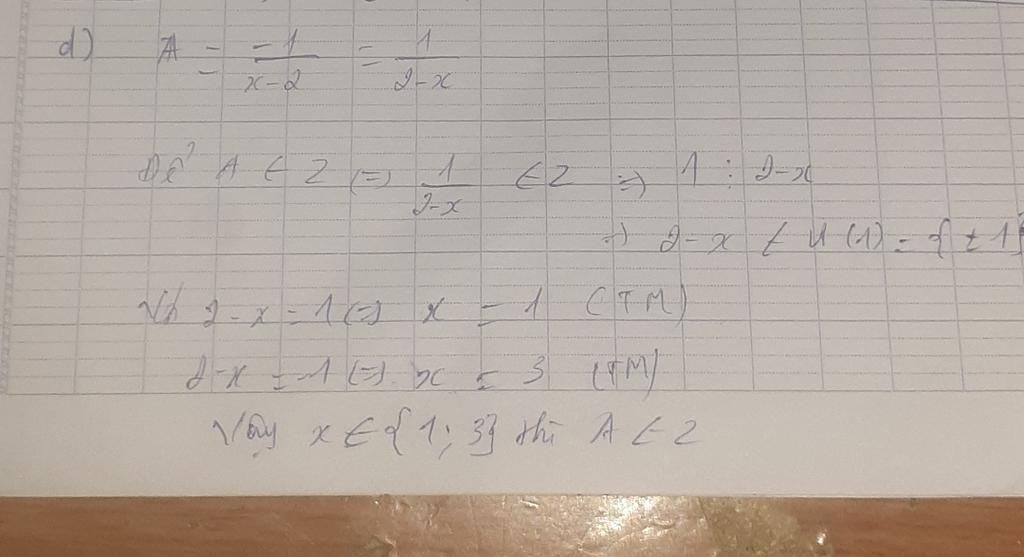 d) A = -1/(x-2) = 1/(2-x)
Để A ∈ Z (=) 1/(2-x) ∈ Z =) 1 ⋮ 2-x
=) 2-x ∈ Ư(1) = {±1}
Với 2-x = 1 (=) x = 1 (TM)
2-x = -1 (=) x = 3 (TM)
Vậy x ∈ {1; 3} thì A ∈ Z